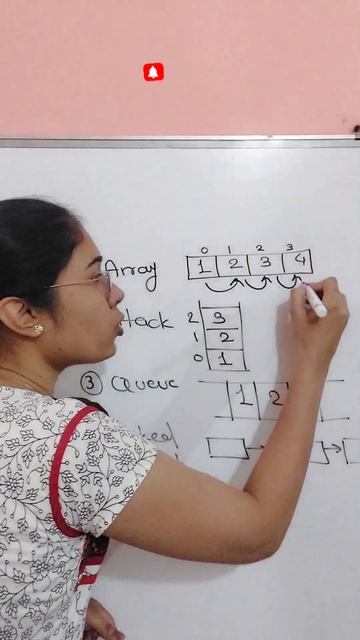 0 1 2 3
Array 1 2 3 4
2 3
tack
1 2
0 1
③ Queue 1 2